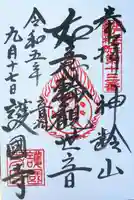 奉拝
神齢山
如意輪観世音
令和五年
九月十七日
護國寺